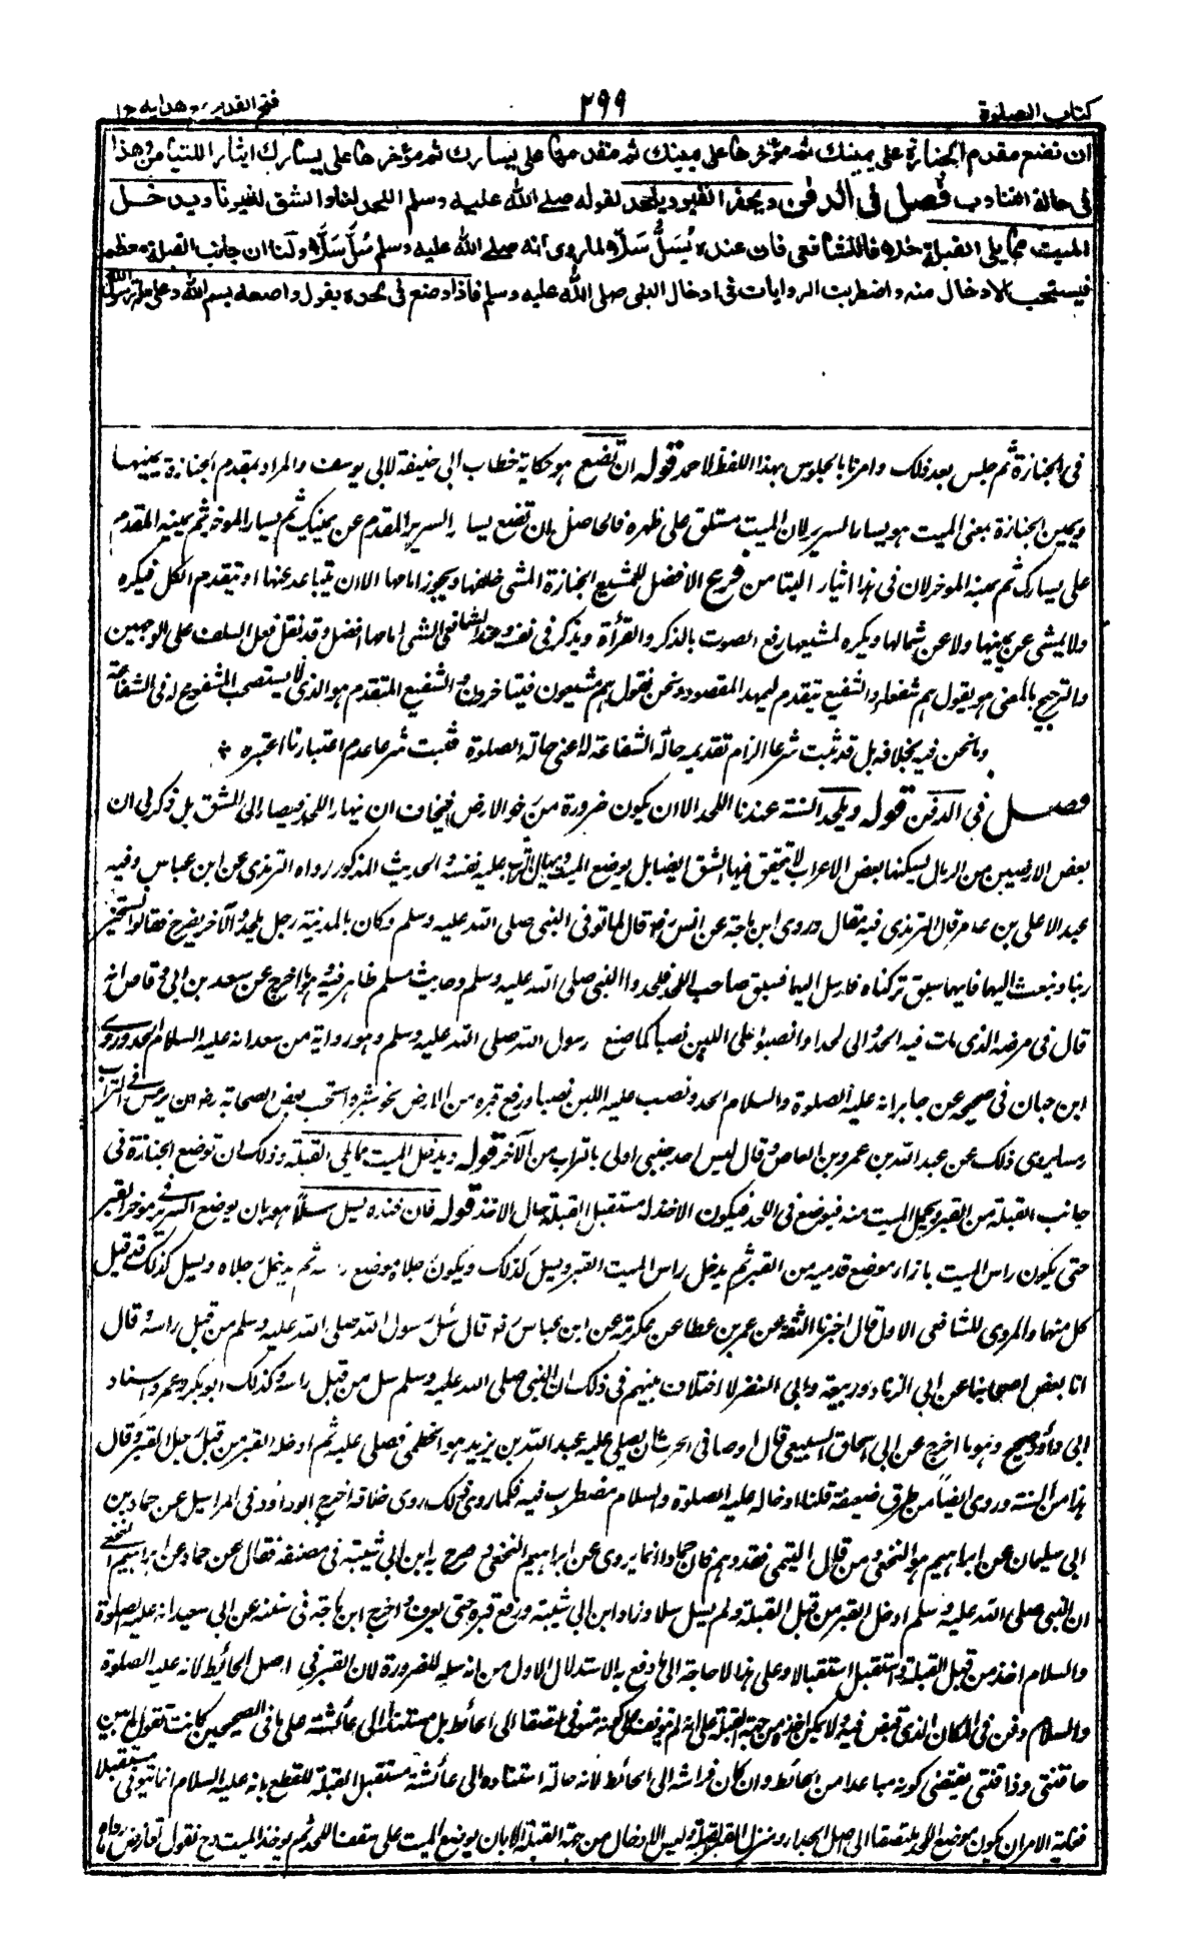 كتاب الصلوة
٢٩٩
فتح القدير مع هدايه ج ١
ان تضع مقدم الجنازة على يمينك ثم مؤخرها على يمينك ثم مقدمها على يسارك ثم مؤخرها على يسارك ايثارا للتيامن وهذا
فى حالة التناوب فصل فى الدفن ويحفر القبر ويلحد لقوله صلى الله عليه وسلم اللحد لنا والشق لغيرنا ويدخل
الميت مما يلى القبلة خلافا للشافعى فان عنده يُسَلُّ سَلًّا لما روى انه صلى الله عليه وسلم سُلَّ سَلًّا ولنا ان جانب القبلة معظم
فيستحب الادخال منه واضطربت الروايات فى ادخال النبى صلى الله عليه وسلم فاذا وضع فى لحده يقول واضعه بسم الله وعلى ملة رسول الله
فى الجنازة ثم جلس بعد ذلك وامرنا بالجلوس بهذا اللفظ لاحمد قوله ان تضع هو حكاية خطاب ابى حنيفة لابى يوسف والمراد بمقدم الجنازة يمينها
ويمين الجنازة بمعنى الميت هو يسار السرير لان الميت مستلق على ظهره فالحاصل ان تضع يسار السرير المقدم عن يمينك ثم يساره المؤخر ثم يمينه المقدم
على يسارك ثم يمينه المؤخر لان فى هذا ايثار التيامن فرع الافضل للمشيع الجنازة المشى خلفها ويجوز امامها الا ان يتباعد عنها او يتقدم الكل فيكره
ولا يمشى عن يمينها ولا عن شمالها ويكره لمشيعها رفع الصوت بالذكر والقرأة ويذكر فى نفسه وعند الشافعى المشى امامها افضل وقد نقل فعل السلف على الوجهين
والترجيح بالمعنى هو يقول هم شفعاء والشفيع يتقدم ليمهد المقصود ونحن نقول هم مشيعون فيتاخرون والشفيع المتقدم هو الذى لا يستصحب المشفوع له فى الشفاعة
وما نحن فيه بخلافه بل قد ثبت شرعا الزام تقديمه حالة الشفاعة له اعنى حالة الصلوة فثبت شرعا عدم اعتبار ما اعتبره
فصل فى الدفن قوله ويلحد السنة عندنا اللحد الا ان يكون ضرورة من رخو الارض فيخاف ان ينهار اللحد فيصار الى الشق بل ذكر لى ان
بعض الارضين من الرمال يسكنها بعض الاعراب لا يتحقق فيها الشق ايضا بل يوضع الميت ويهال التراب عليه نفسه والحديث المذكور رواه الترمذى عن ابن عباس وفيه
عبد الاعلى بن عامر قال الترمذى فيه مقال وروى ابن ماجة عن انس قال لما توفى النبى صلى الله عليه وسلم وكان بالمدينة رجل يلحد والآخر يضرح فقالوا نستخير
ربنا ونبعث اليهما فايهما سبق تركناه فارسل اليهما فسبق صاحب اللحد فلحدوا النبى صلى الله عليه وسلم وحديث مسلم ظاهر فيه وهو ما اخرج عن سعد بن ابى وقاص انه
قال فى مرضه الذى مات فيه الحدوا لى لحدا وانصبوا على اللبن نصبا كما صنع رسول الله صلى الله عليه وسلم وهو رواية من سعد انه عليه السلام الحد وروى
ابن حبان فى صحيحه عن جابر انه عليه الصلوة والسلام الحد ونصب عليه اللبن نصبا ورفع قبره من الارض نحو شبر واستحب بعض الصحابة ان يرمس فى التراب
رمسا يروى ذلك عن عبد الله بن عمرو بن العاص وقال ليس احد جنبى اولى بالتراب من الآخر قوله ويدخل الميت مما يلى القبلة وذلك ان توضع الجنازة فى
جانب القبلة من القبر ويحمل الميت منه فيوضع فى اللحد فيكون الاخذ له مستقبل القبلة حال الاخذ قوله فان عنده يسل سلا هو بان يوضع السرير فى مؤخر القبر
حتى يكون راس الميت بازاء موضع قدميه من القبر ثم يدخل راس الميت القبر ويسل كذلك ويكون رجلاه موضع راسه ثم يدخل رجلاه ويسل كذلك قد قيل
كل منهما والمروى للشافعى الاول قال اخبرنا الثقة عن عمر بن عطا عن عكرمة عن ابن عباس قال سُل رسول الله صلى الله عليه وسلم من قبل راسه وقال
انا بعض اصحابنا عن ابى الزناد وربيعة وابى النضر لا اختلاف بينهم فى ذلك ان النبى صلى الله عليه وسلم سل من قبل راسه وكذلك ابو بكر وعمر واسناد
ابى داؤد صحيح وهو ما اخرج عن ابى اسحاق السبيعى قال اوصانى الحرث ان يصلى عليه عبد الله بن يزيد هو الخطمى فصلى عليه ثم ادخله القبر من قبل رجل القبر وقال
هذا من السنة وروى ايضا من طرق ضعيفة قلنا ادخاله عليه الصلوة والسلام مضطرب فيه فكما روى ذلك روى خلافه اخرج ابو داؤد فى المراسيل عن حماد بن
ابى سليمان عن ابراهيم هو النخعى ومن قال التيمى فقد وهم فان حمادا انما يروى عن ابراهيم النخعى وصرح به ابن ابى شيبة فى مصنفه فقال عن حماد عن ابراهيم النخعى
ان النبى صلى الله عليه وسلم ادخل القبر من قبل القبلة ولم يسل سلا وزاد ابن ابى شيبة ورفع قبره حتى يعرف واخرج ابن ماجة فى سننه عن ابى سعيد انه عليه الصلوة
والسلام اخذ من قبل القبلة واستقبل استقبالا وعلى هذا لا حاجة الى ما دفع به الاستدلال الاول من انه سله للضرورة لان القبر فى اصل الحائط لانه عليه الصلوة
والسلام دفن فى المكان الذى قبض فيه ولا يمكن اخذه من جهة القبلة على انه لم يتوف ملتصقا الى الحائط بل مستندا الى عائشة على ما فى الصحيحين كانت تقول مات بين
حاقنتى وذاقنتى يقتضى كونه مباعدا من الحائط وان كان فراشه الى الحائط لانه حالة استناده الى عائشة مستقبل القبلة للقطع بانه عليه السلام انما يتوفى مستقبلا
فغاية الامر ان يكون موضع اللحد ملتصقا الى اصل الجدار ومنزل القبر قبله وليس الادخال من جهة القبلة الا بان يوضع الميت على سقف اللحد ثم يوخذ الميت وح نقول تعارض ما رواه